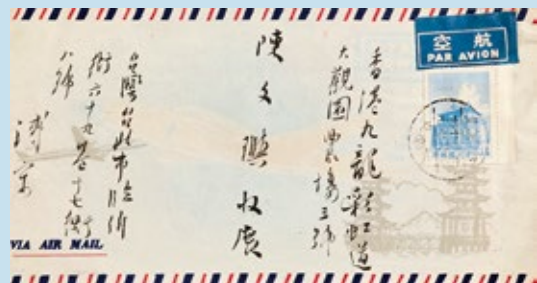 航空
PAR AVION
香港九龍彩虹道
大觀園 樓 號
陳文 收展
台灣台北市
街六十九巷十七衖
八號
VIA AIR MAIL